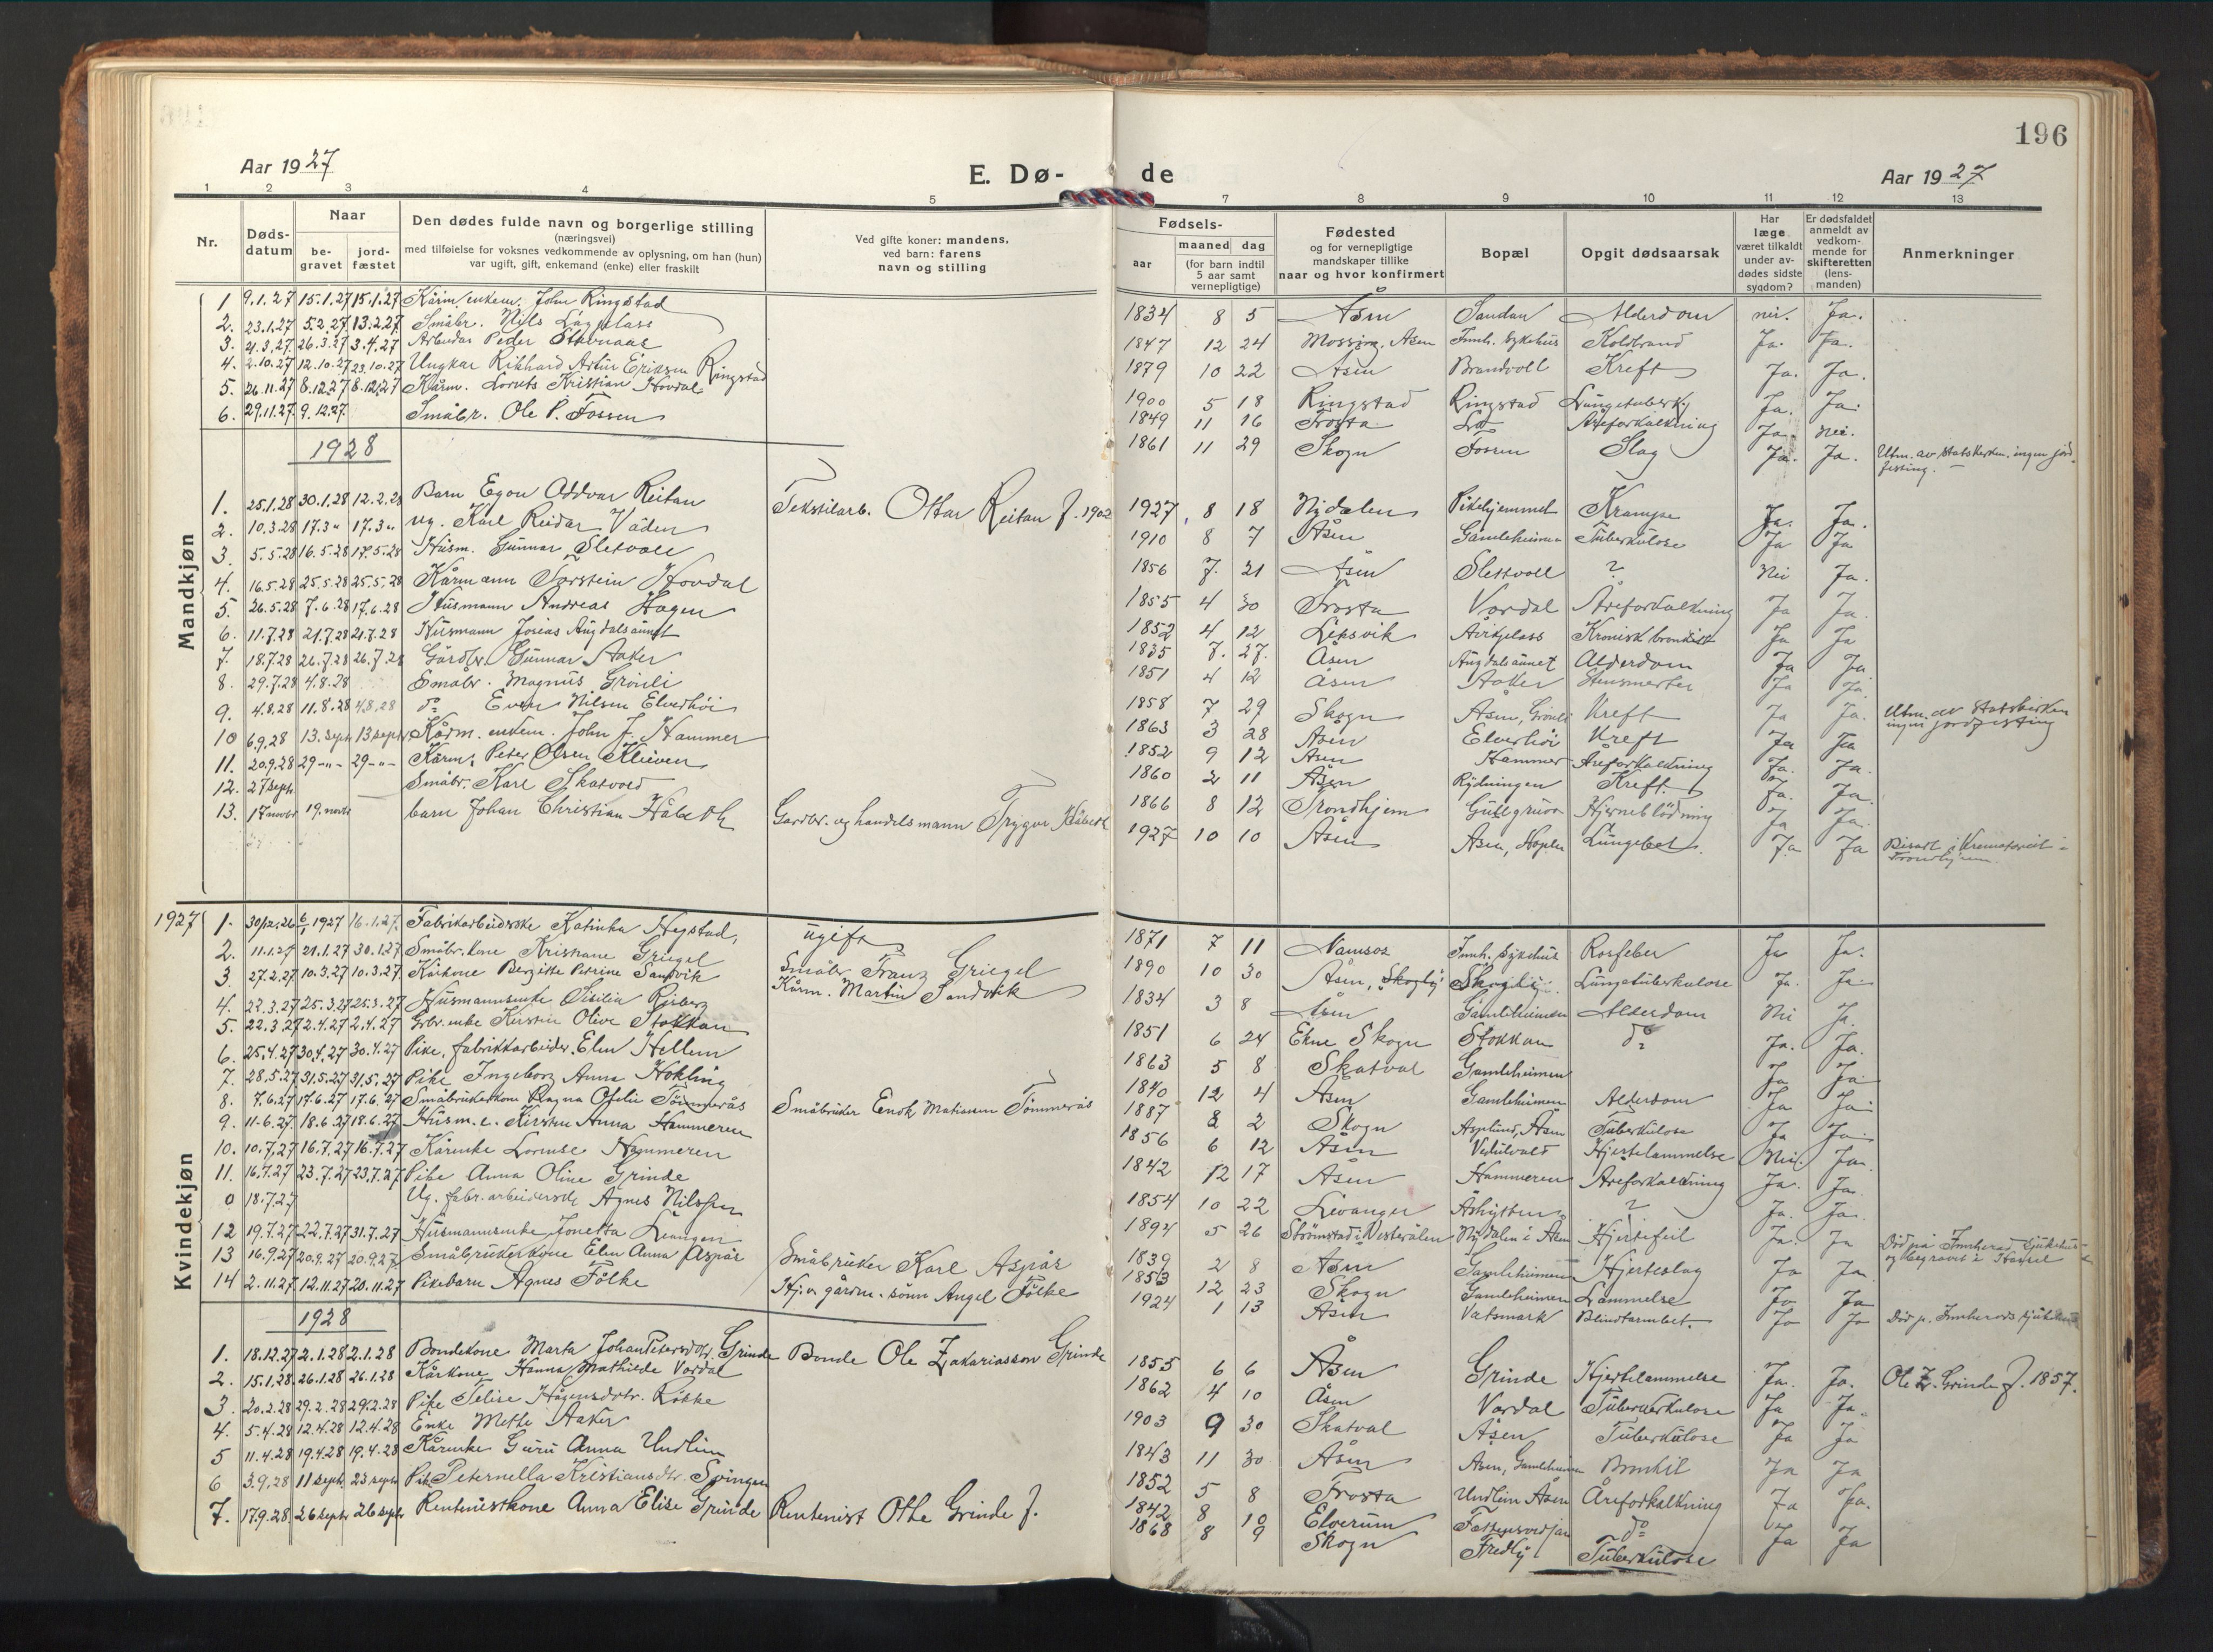 196
Aar 1927
E. Dø-
de
Aar 1927
1 2 3 4 5 7 8 9 10 11 12 13
Nr.
Døds-
datum
Naar
be-
gravet
jord-
fæstet
Den dødes fulde navn og borgerlige stilling
(næringsvei)
med tilføielse for voksnes vedkommende av oplysning, om han (hun)
var ugift, gift, enkemand (enke) eller fraskilt
Ved gifte koner: mandens,
ved barn: farens
navn og stilling
Fødsels-
aar
maaned dag
(for barn indtil
5 aar samt
vernepligtige)
Fødested
og for vernepligtige
mandskaper tillike
naar og hvor konfirmert
Bopæl
Opgit dødsaarsak
Har
læge
været tilkaldt
under av-
dødes sidste
sygdom?
Er dødsfaldet
anmeldt av
vedkom-
mende for
skifteretten
(lens-
manden)
Anmerkninger
Mandkjøn
1 9.1.27 15.1.27 15.1.27 Kårm. enkem. John Ringstad 1834 8 5 Åsen Sandan Alderdom nei. Ja.
2. 23.1.27 5.2.27 13.2.27 Småbr. Nils 1847 12 24 Mossing, Åsen Innh. sykehus Koldbrand Ja. Ja.
3. 4.3.27 26.3.27 3.4.27 Arbeider Peder Stavnaas 1879 10 22 Åsen Brandvoll Kreft Ja. Ja.
4. 2.10.27 12.10.27 23.10.27 Ungkar Rikhard Artur Eriksen Ringstad 1900 5 18 Ringstad Ringstad Lungetuberk. Ja. Ja.
5. 26.11.27 8.12.27 8.12.27 Kårm. Lornts Kristian Hovdal 1849 11 16 Frosta Åreforkalkning Ja. Nei.
6. 29.11.27 9.12.27 Småbr. Ole P. Fossen 1861 11 29 Skogn Fossen Slag Ja. Ja. Utm. av statskirken, ingen jord-
festing.
1928
1. 25.1.28 30.1.28 12.2.28 Barn Egon Oddvar Reitan Tekstilarb. Ottar Reitan f. 1902 1927 8 18 Nydalen Pikehjemmet Krampe Ja. Ja.
2. 10.3.28 17.3 " 17.3 " ug. Karl Reidar Våden 1910 8 7 Åsen Gamleheimen Tuberkulose Ja Ja
3. 5.5.28 16.5.28 17.5.28 Husm. Gunnar Sletvold 1856 7. 21 Åsen Slettvoll ? Nei Ja.
4. 16.5.28 25.5.28 25.5.28 Kårmann Torstein Hovdal 1855 4 30 Frosta Vordal Åreforkalkning Ja Ja.
5. 26.5.28 7.6.28 17.6.28 Husmann Andreas Hagen 1852 4 12 Leksvik Kronisk bronkitt Ja Ja
6. 11.7.28 21.7.28 21.7.28 Husmann Josias Augdalsaunet 1835 7. 27. Åsen Augdalsaunet Alderdom Ja Ja
7. 18.7.28 26.7.28 26.7.28 Gårdbr. Gunnar Aaker 1851 4 12 Åsen Aaker Stensmerter Ja Ja
8. 29.7.28 4.8.28 Småbr. Magnus Grønli 1858 7 29 Skogn Åsen, Grønli Kreft Ja Ja. Utm. av Statskirken
ingen jordfesting
9. 4.8.28 11.8.28 4.8.28 do Even Nilsen Elverhøi 1863 3 28 Åsen Elverhøi Kreft Ja Ja
10 6.9.28 13. sept 13 sept. Kårm. enkem. John J. Hammer 1852 9 12 Åsen Hammer Åreforkalkning Ja. Ja.
11. 20.9.28 29 -"- 29 -"- Kårm. Peter Olsen Kleiven 1860 2 11 Åsen Rydningen Kreft Ja. Ja.
12. 27 sept. Småbr. Karl Skatvold 1866 8 12 Trondhjem Gullgruva Hjerneblødning Ja Ja.
13. 17 novbr 19. novbr barn Johan Christian Gardbr. og handelsmann Trygve 1927 10 10 Åsen Åsen, Hoplen Lungebet. Ja Ja Bisatt i Krematoriet i
Trondhjem
Kvindekjøn
1927 1. 30/12.26 6/1 1927 16.1.27 Fabrikarbeiderske Katinka Hegstad, ugift 1871 7 11 Namsos Innh. sykehus Rosfeber Ja Ja.
2. 11.1.27 21.1.27 30.1.27 Småbr. kone Kristiane Griegel Småbr. Franz Griegel 1890 10 30 Åsen, Skogly Skogly Lungetuberkulose Ja. Ja
3. 27.2.27 10.3.27 10.3.27 Kårkone Bergitte Petrine Sandvik Kårm. Martin Sandvik 1834 3 8 Åsen Gamleheimen Alderdom Nei Ja.
4. 22.3.27 25.3.27 25.3.27 Husmannsenke Sisilia 1851 6 24 Ekne Skogn Stokkan do Ja. Ja.
5. 22.3.27 2.4.27 2.4.27 Grbr. enke Kirstin Olive Stokkan 1863 5 8 Skatval Gamleheimen Ja Ja
6. 25.4.27 30.4.27 30.4.27 Pike, fabrikkarbeider. Elen Hellem 1840 12 4 Åsen Gamleheimen Alderdom Ja Ja
7. 28.5.27 31.5.27 31.5.27 Pike Ingeborg Anna Hokling 1887 2 2 Skogn Asplund, Åsen Tuberkulose Ja Ja
8. 7.6.27 17.6.27 17.6.27 Småbrukerkone Ragna Ofelie Tømmerås Småbruker Enok Matiassen Tømmerås 1856 6 12 Åsen Hjertelammelse Nei. Ja.
9. 11.6.27. 18.6.27 18.6.27 Husm. e. Kirstin Anna Hammeren 1842 12 17 Åsen Hammeren Åreforkalkning Ja. Ja.
10. 10.7.27 16.7.27 16.7.27 Kårenke Lornse Hammeren 1854 10 22 Levanger Åshytten ? Ja. Ja.
11. 16.7.27 23.7.27 23.7.27 Pike Anna Oline Grinde 1894 5 26 Strømstad i Vesterålen Nydalen i Åsen Hjertefeil Ja. Ja Død på Innherad sjukehus
og begravet i
0 18.7.27 Ug. fabr. arbeiderske Agnes Nilssen 1839 2 8 Åsen Gamleheimen Hjerteslag Ja Ja
12 19.7.27 22.7.27 31.7.27 Husmannsenke Jonetta Luangen 1853 12 23 Skogn Gamleheimen Lammelse Ja Ja
13 16.9.27 20.9.27 20.9.27 Småbrukerkone Elen Anna Aspås Småbruker Karl Aspås 1924 1 13 Åsen Vatsmark Blindtarmbet. Ja Ja Død p. Innherads sjukehus
14 2.11.27 12.11.27 20.11.27 Pikebarn Agnes Følke Hj. v. gårdm. sønn Angel Følke
1928
1. 18.12.27 2.1.28 2.1.28 Bondekone Marta Johan Petersdtr. Grinde Bonde Ole Zakariasson Grinde 1855 6 6 Åsen Grinde Hjertelammelse Ja. Ja. Ole Z. Grinde f. 1857.
2. 15.1.28 26.1.28 26.1.28 Kårkone Hanna Mathilde Vordal 1862 4 10 Åsen Vordal Tuberkulose Ja Ja.
3. 20.2.28 29.2.28 29.2.28 Pike Selise Hågensdotr. Løkke 1903 9 30 Skatval Åsen Tuberkulose Ja Ja
4. 5.4.28 12.4.28 12.4.28 Enke Mette Aaker 1843 11 30 Åsen Åsen, Gamleheimen Bronkit Ja Ja
5 11.4.28 19.4.28 19.4.28 Kårenke Guru Anna Undlien 1852 5 8 Frosta Undlien Åsen Åreforkalkning Ja Ja.
6 3.9.28 11 sept. 23 sept. Pike Peternella Kristiansdtr. Svingen 1842 8 10 Elverum do Ja Ja
7. 17.9.28 26 sept. 26 sept. Rentenistkone Anna Elise Grinde Rentenist Otte Grinde f. 1868 8 9 Skogn Fredly Tuberkulose